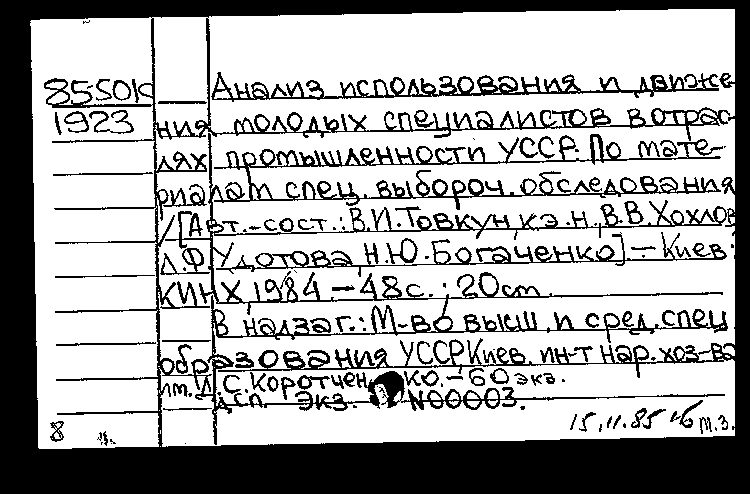 85-50к Анализ использования и движе-
1923 ния молодых специалистов в отрас-
лях промышленности УССР. По мате-
риалам спец. выбороч. обследования
/[Авт.-сост.: В.И. Товкун, к.э.н, В.В. Хохлов
Л.Ф. Удотова, Н.Ю. Богаченко] — Киев:
КИНХ, 1984. — 48 с.; 20 cm.
В надзаг.: М-во высш. и сред. спец
образования УССР, Киев. ин-т нар. хоз-ва
им. Д.С. Коротченко. — 60 экз.
дсп. Экз. N00003.
8 15.11.85 т.з.